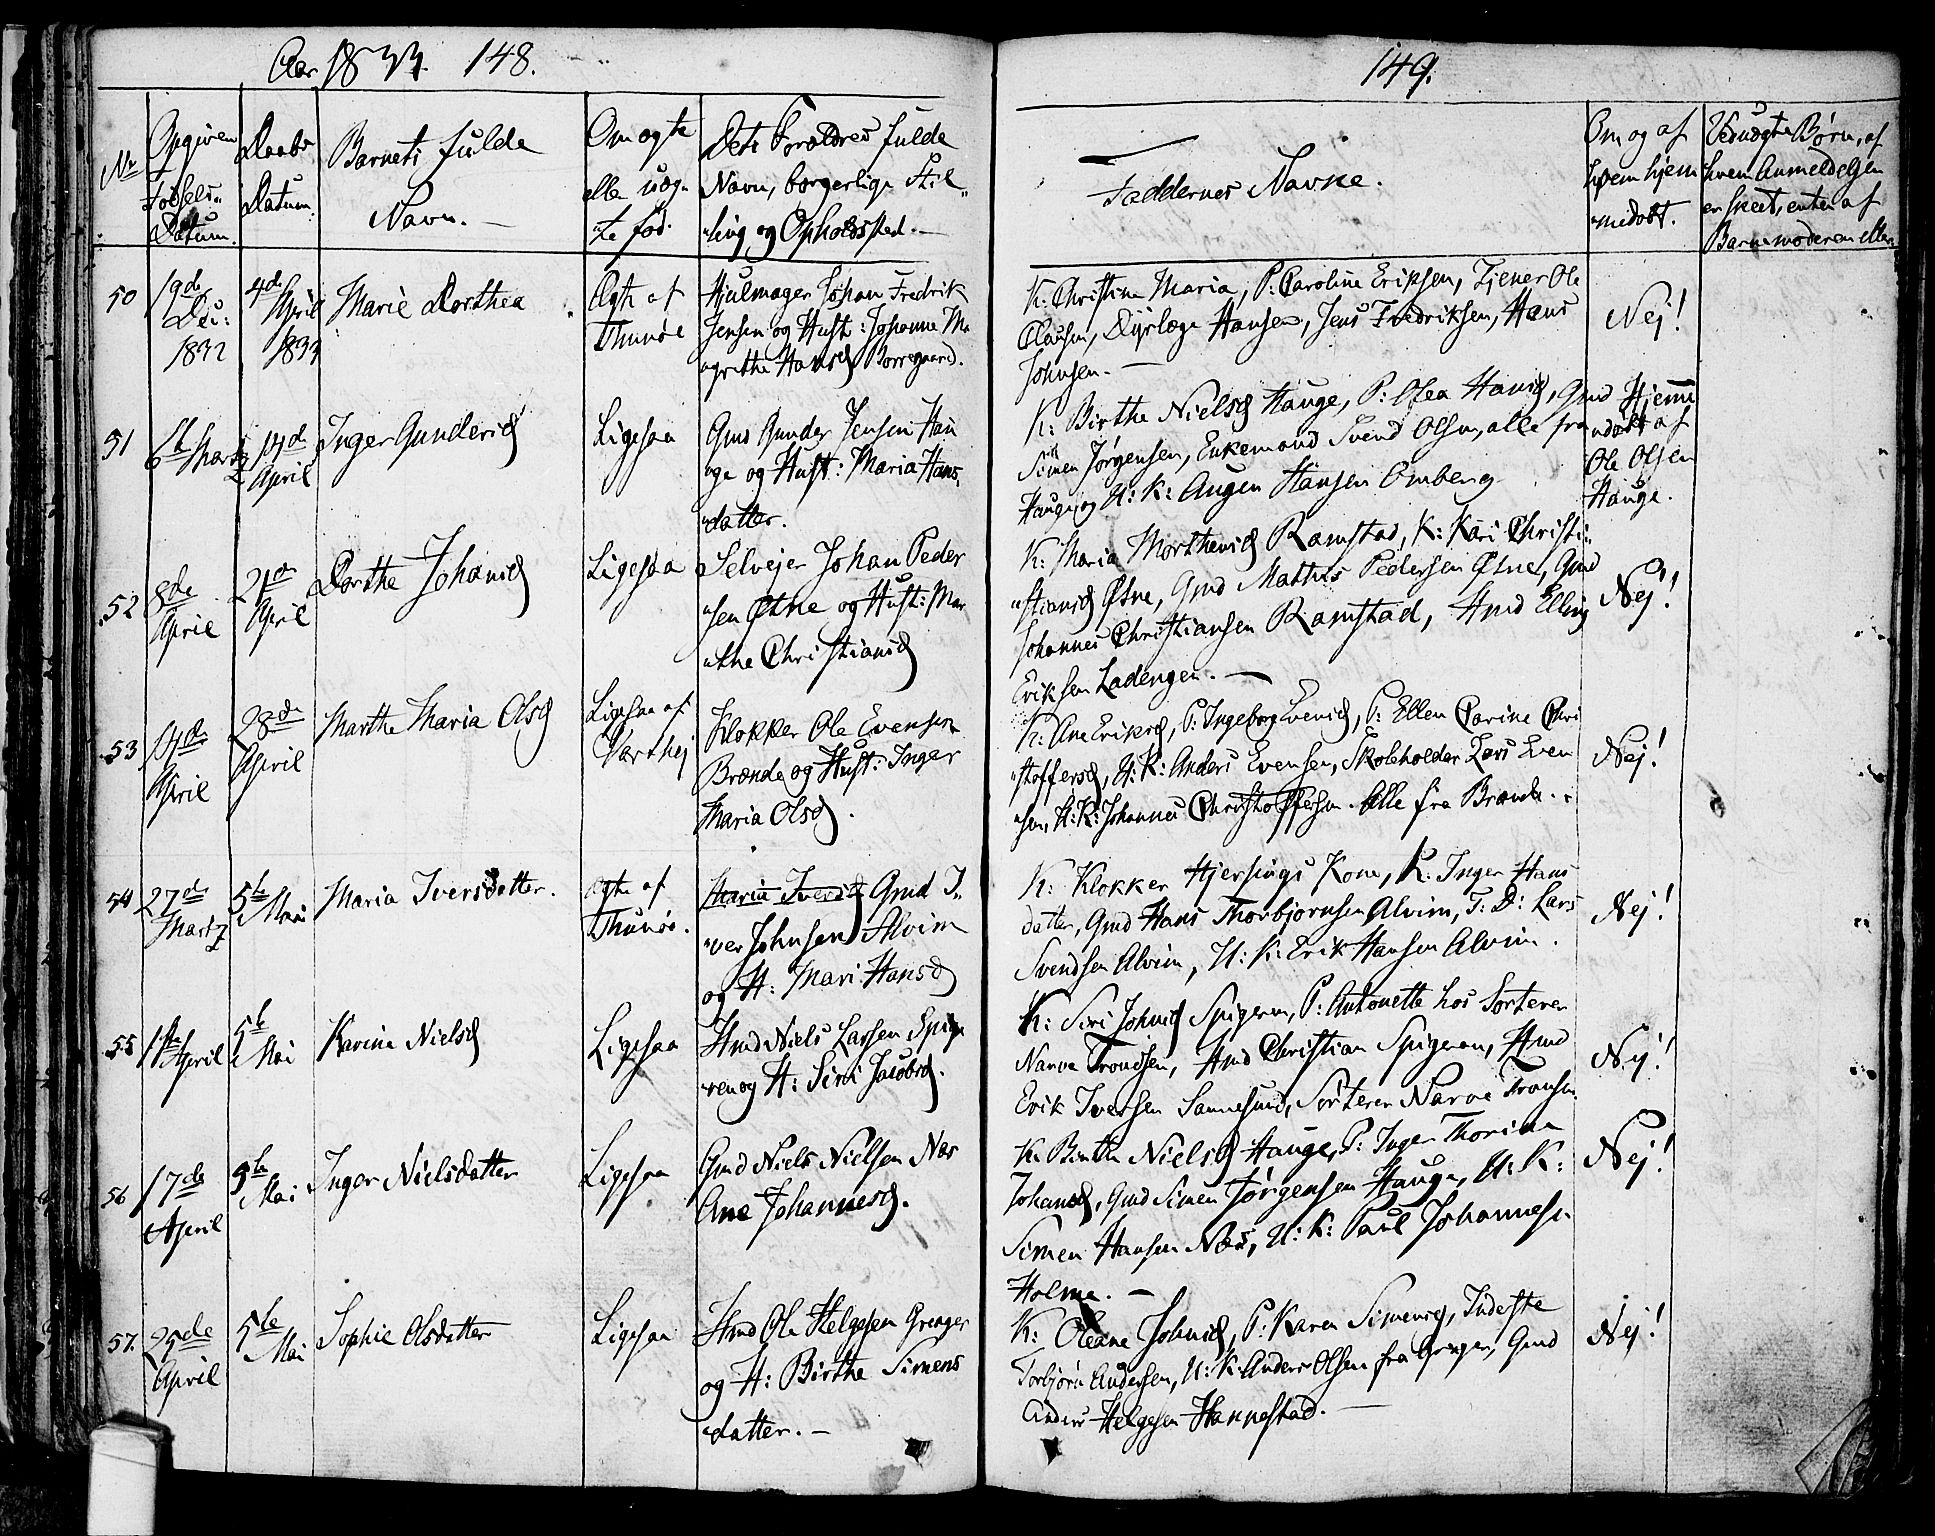 Aar 1833. 148.
No
Opgiven
Fødsels-
Datum.
Daabs
Datum.
Barnets fulde
Navn. —
Om ægte
elle uæg-
te fød.
Dets Forældres fulde
Navn, borgerlige Stil-
-ling og Opholdssted. —
50
19de
Dec:
1832
4de
April
1833
Marie Dorthea
Ægte af
Thunøe
Hjulmager Johan Fredrik
Jensen og Hust: Johanne Ma
-grethe Hansd Borregaard.
51
6te Martz
14de
April
Inger Gundersd
Ligesaa
Gmd Gunder Jensen Hau
-ge og Hust: Maria Hans
-datter.
52
8de
April
21de
April
Dorthe Johansd
Ligesaa
Selvejer Johan Peder
-sen Østne og Hust: Mar
-the Christiansd
53
14de
April
28de
April
Marthe Maria Olsd
Ligesaa af
Varthej
Klokker Ole Evensen
Brænde og Hust: Inger
Maria Olsd.
54
27de
Martz
5te Mai
Maria Iversdatter.
Ægte af
Thunøe.
Maria Iversd Gmd I-
-ver Johnsen Alvim
og H: Mari Hansd
55
1ste April
5te
Mai
Karine Nielsd
Ligesaa
Hmd Niels Larsen Spige
-ren og H: Siri Jacobsd.
56
17de
April
5te
Mai
Inger Nielsdatter
Ligesaa
Gmd Niels Nielsen Næs
Ane Johannesd.
57.
25de
April
5te
Mai
Sophie Olsdatter
Ligesaa
Hmd Ole Helgesen Greager
og H: Birthe Simens
-datter. —
149.
Faddernes Navne.
Om og af
hvem hjem
-medøbt.
Uægte Børn, af
hvem Anmeldelsen
er skeet, enten af
Barnemoderen eller
K: Christine Maria, P: Caroline Eriksen, Tjener Ole
Clausen, Dyrlæge Hansen, Jens Fredriksen, Hans
Johnsen. —
Nej!
K: Birthe Nielsd Hauge, P: Olea Hansd, Gmd
Simen Jørgensen, Enkemand Svend Olsen, alle fra
Hauge og U: K: Augen Hansen Omberg
Hjemme
-døbt af
Ole Olsen
Hauge.
K: Maria Morthensd Ramstad, K: Kari Christi-
-stiansd Østne, Gmd Mathis Pedersen Østne, Gmd
Johannes Christiansen Ramstad, Hmd Elling
Eriksen Ladengen. —
Nej!
K: Ane Eriksd, P: Ingeborg Evensd, P: Ellen Carine Chri
-stoffersd, U: K: Anders Evensen, Skoleholder Lars Even
-sen, U: K: Johannes Christoffersen. Alle fra Brænde. -
Nej!
K: Klokker Hjersings Kone, K: Inger Hans
datter, Gmd Hans Thorbjørnsen Alvim, T: D: Lars
Svendsen Alvim, U: K: Erik Hansen Alvim.
Nej!
K: Siri Johnsd Spigeren, P: Antonette hos Sorterer
Narve Trondsen, Hmd Christian Spigeren, Hmd
Erik Iversen Sannesund, Sorterer Narve Tronsen
Nej!
K: Birthe Nielsd Hauge, P: Inger Thorine
Johansd, Gmd Simen Jørgensen Hauge, U: K:
Simen Hansen Næs, U: K: Paul Johannesen
Holme. —
Nej!
K: Oleane Johnsd, P: Karen Simensd, Inderste
Torbjørn Andersen, U: K: Anders Olsen fra Greger, Gmd
Anders Helgesen Hannestad. —
Nej!